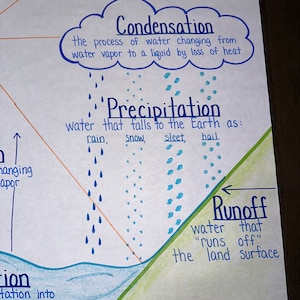 Condensation
the process of water changing from
water vapor to a liquid by loss of heat
Precipitation
water that falls to the Earth as:
rain, snow, sleet, hail
n
hanging
apor
Runoff
water that
"runs off"
the land surface
tion
tation into